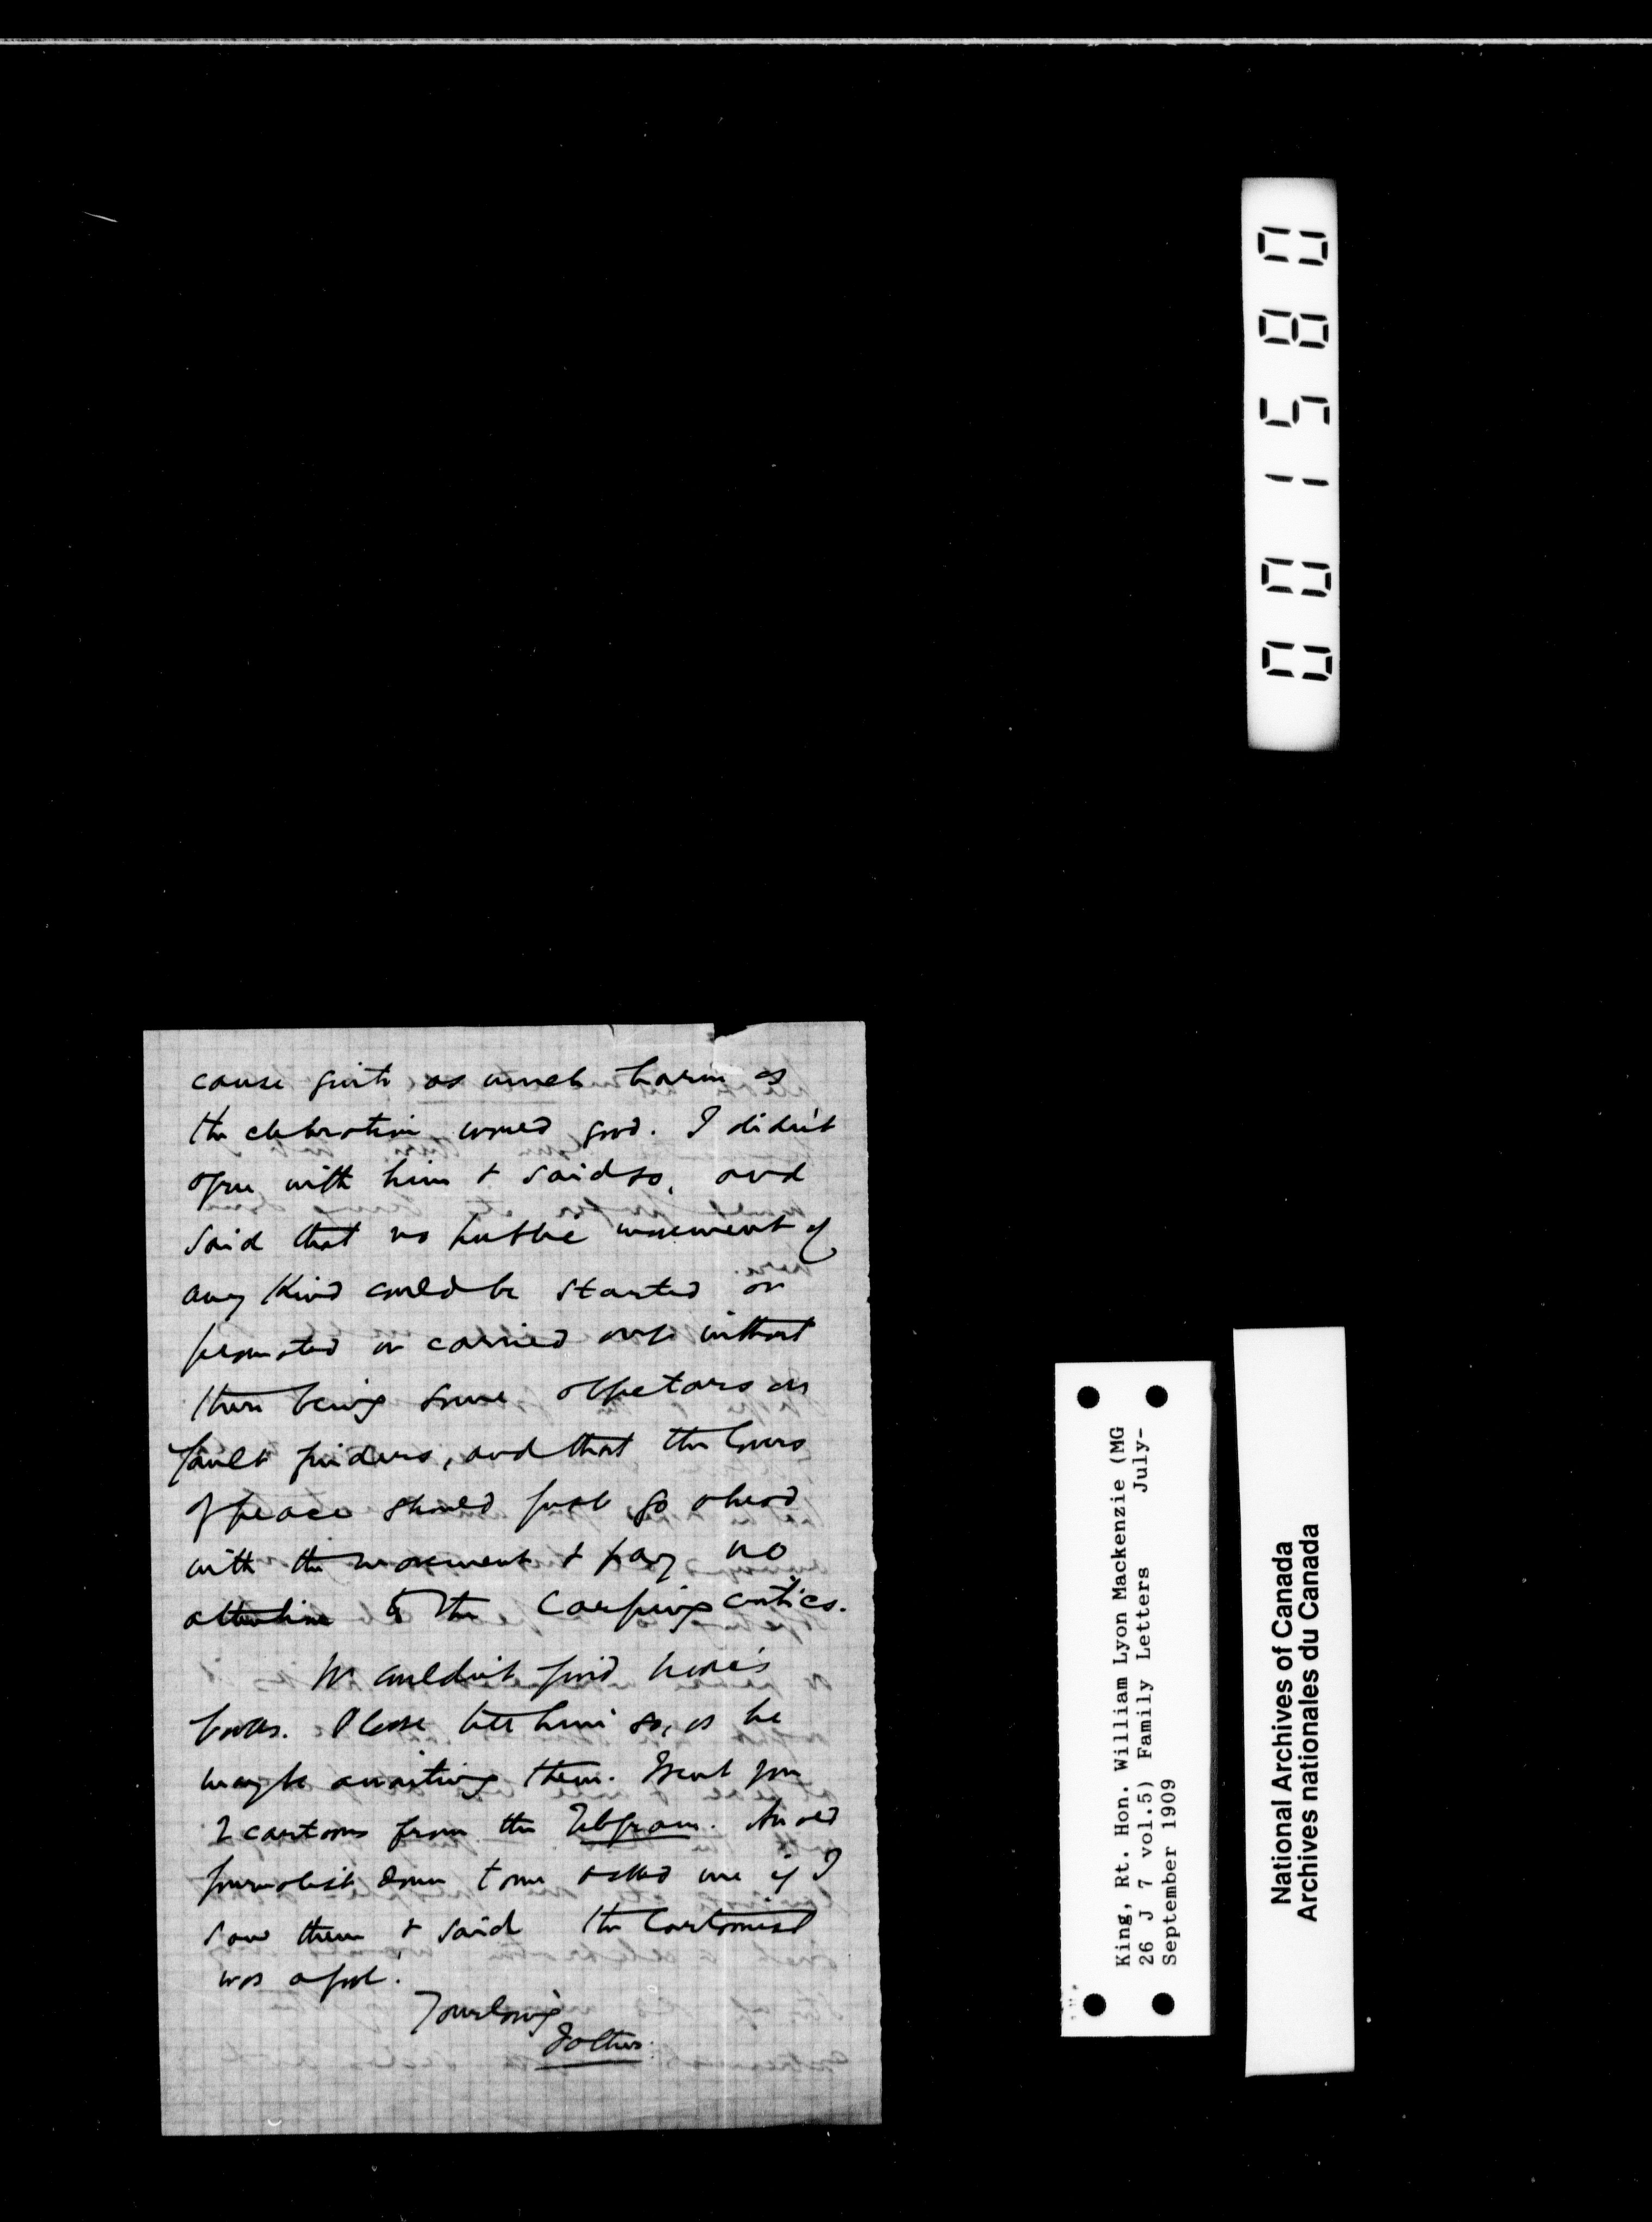 cause quite as much harm as
the celebration would good. I didn't
agree with him & said so, and
said that no public movement of
any kind could be started or
promoted or carried out without
there being some objectors or
fault finders, and that the lovers
of peace should just go ahead
with the movement & pay no
attention to the carping critics.
We couldn't find
books. Please tell him so, as he
may be awaiting them. Sent you
2 cartoons from the Telegram. An old
journalist down town asked me if I
saw them & said the Cartoonist
was a fool.
Your loving
Father.
001580
King, Rt. Hon. William Lyon Mackenzie (MG
26 J 7 vol.5) Family Letters July-
September 1909
National Archives of Canada
Archives nationales du Canada